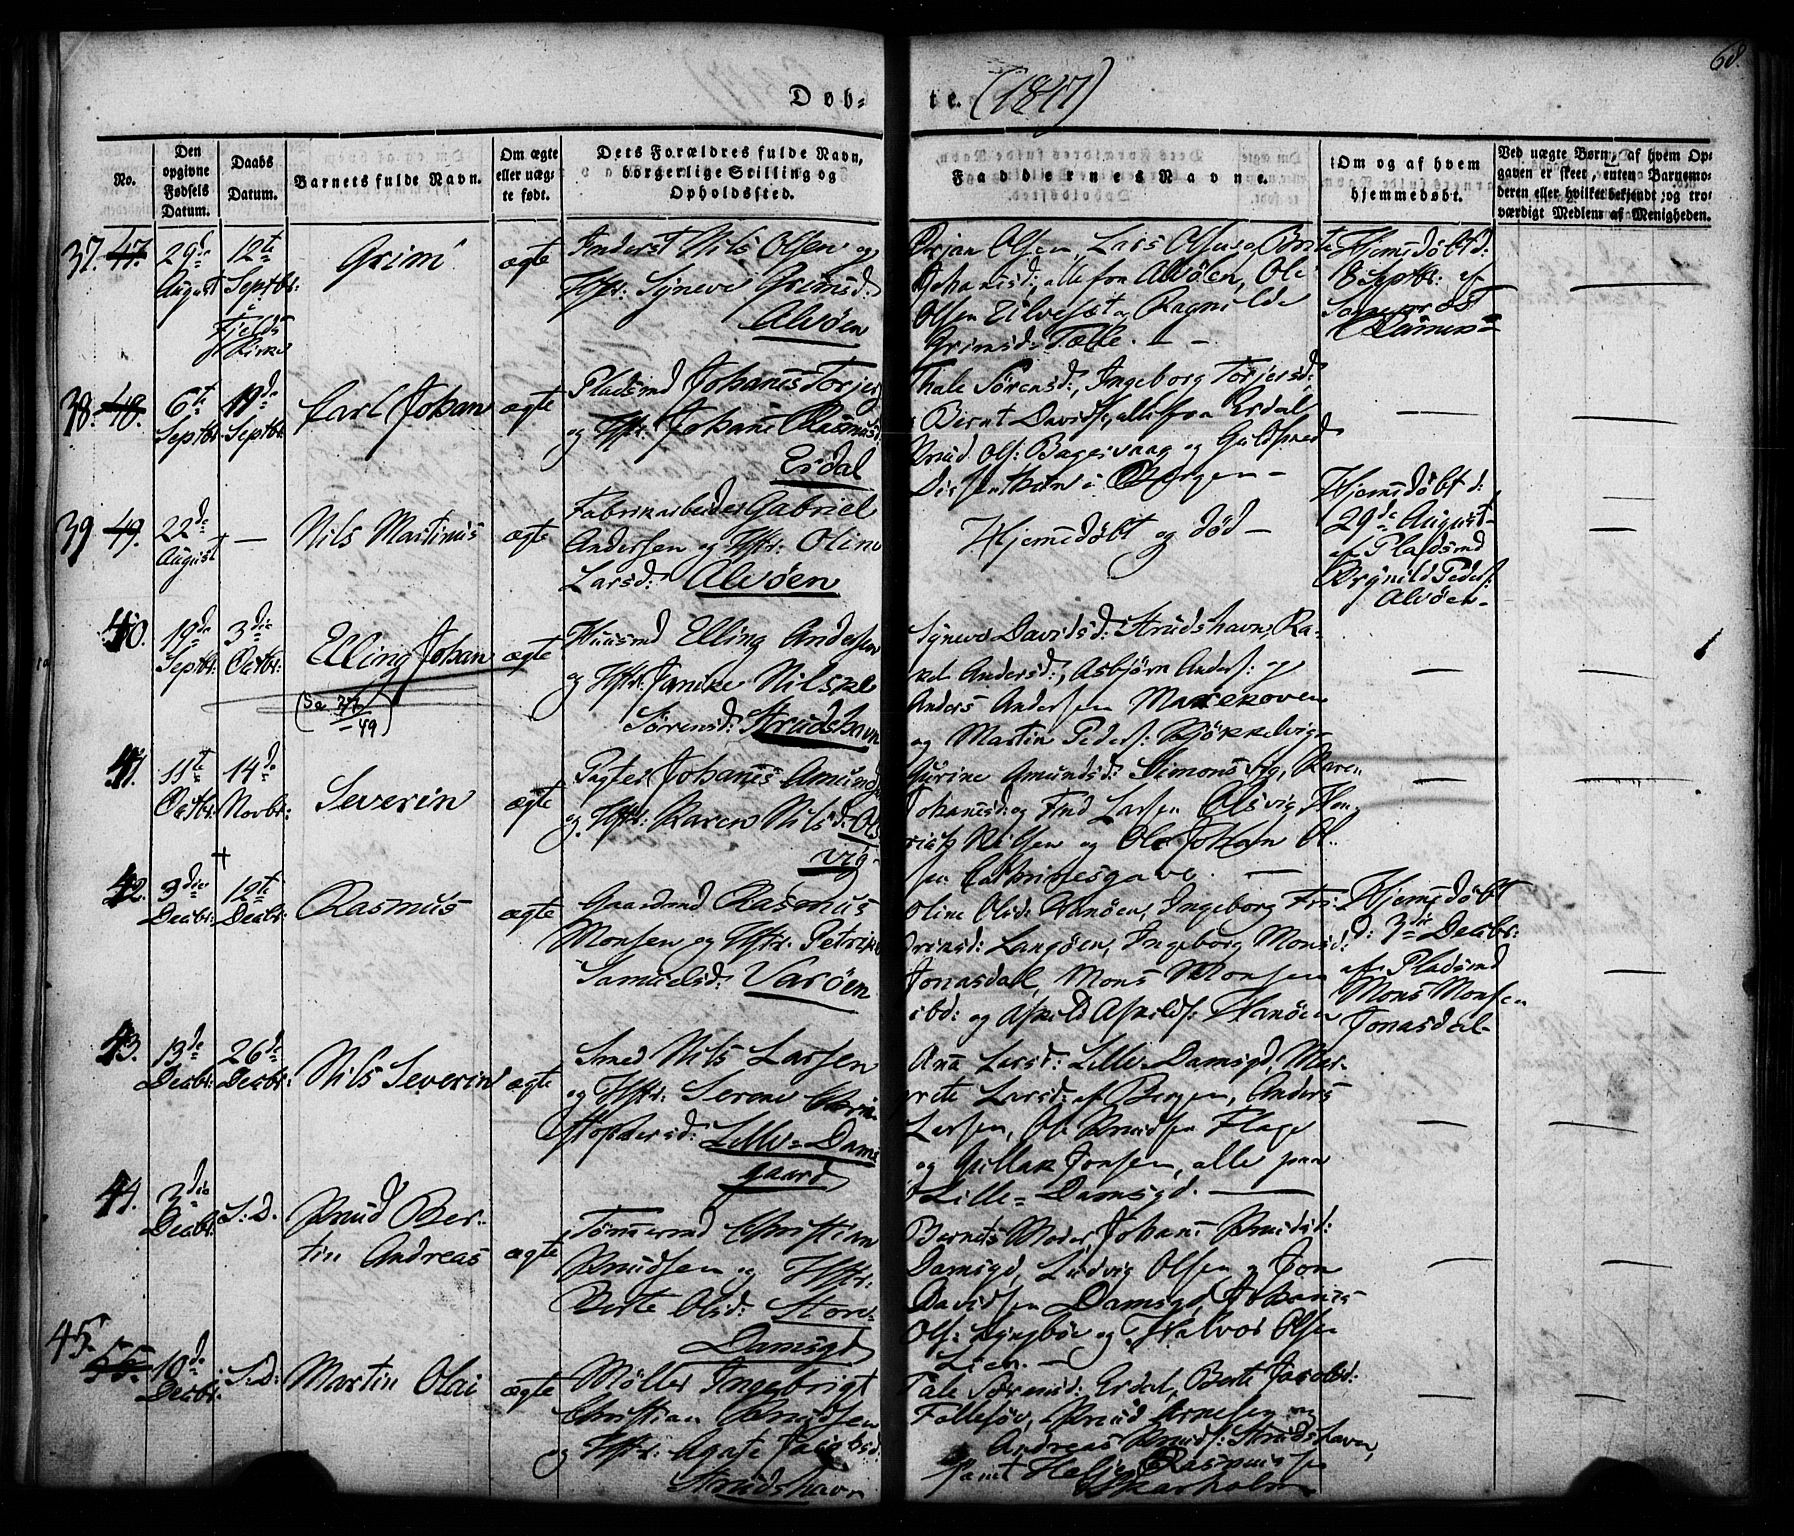 68.
Døb-
te. (1847)
No.
Den opgivne Fødsels Datum.
Daabs Datum.
Barnets fulde Navn.
Om ægte eller uægte født.
Dets Forældres fulde Navn, borgerlige Stilling og Opholdssted.
Faddernes Navne.
Om og af hvem hjemmedøbt.
Ved uægte Børn, af hvem Opgaven er skeet, enten Barnemoderen eller hvilket bekjendt og troværdigt Medlem af Menigheden.
37. 47.
29de August
12te Septbr:
Fjelds Kirke
Grim
ægte
Nils Olsen og
Hstr: Syneve Grimsd:
Alvøen
Ørjan Olsen, Lars
Johanisd: alle fra Alvøen, Ole
Olsen og Ragnilde
Grimsd:
Hjemdøbt d:
8 Septbr: af
38. 48.
6te Septbr
19de Septbr:
Carl Johan
ægte
Pladsmd Johanis Torjers
og Hstr: Johane Rasmusd:
Erdal
Thale Sørensd:, Ingeborg Torjersd:
Bernt Davids, alle fra Erdal
Knud Ols: og
i Bergen -
39 49.
22de August
—
Nils Martinus
ægte
Fabrikarbeider Gabriel
Andersen og Hstr: Oline
Larsd: Alvøen
Hjemmedøbt og død -
Hjemdøbt d:
29de August
af Pladsmd
Brynild Peders:
Alvøen.
40.
19de Septbr:
3die Octbr:
Elling Johan
ægte
Huusmd Elling Andersen
og Hstr: Janike Nilske
Sørensd: Strudshavn
Syneve Davidsd: Strudshavn, Ra-
kel Andersd:, Asbjørn Anders: og
Anders Andersen
og Martin Peders: Kjøkkelvig
41.
11te Octbr:
14de Novbr:
Severin
ægte
Johanis Amunds
og Hstr: Karen Nilsd: Ols
vig
Gurine Amundsd: Simonsvig, Karen
Johanisd: og Knud Larsen Olsvig, Hen-
rich Nilsen og Ole Johan Ol-
sen Cathrinesgave. —
42.
3die Decbr:
12te Decbr:
Rasmus
ægte
Gaardmd Rasmus
Monsen og Hstr: Petrine
Samuelsd: Varøen
Oline Olsd: Hanøen, Ingeborg
Langøen, Ingeborg Monsd:
Jonasdal, Mons Monsen
ibd: og Askild Askilds: Hanøen
Hjemdøbt
d: 3die Decbr:
af Pladsmd
Mons Monsen
Jonasdal
43.
13de Decbr:
26de Decbr:
Nils Severin
ægte
Smed Nils Larsen
og Hstr: Serene Chri-
stophersd: Lille-Dams
gaard
Ana Larsd: Lille-Damsgd, Mar-
grete Larsd: af Bergen, Anders
Larsen, Ole Knudsen Flage
og Gullak Jonsen, alle paa
Lille-Damsgd. —
44.
3die Decbr:
S:D.
Knud Ber-
tin Andreas
ægte
Tømmermd Christian
Knudsen og Hstr:
Berte Olsd: Store-
Damsgd
Barnets Moder, Johane Knudsd:
Damsgd, Ludvig Olsen og Jon
Davidsen Damsgd, Johanis
Ols: Lyngbø og Halvor Olsen
Lien. —
45. 55.
10de Decbr:
S:D:
Martin Olai
ægte
Møller Ingebrigt
Christian Knudsen
og Hstr: Agate Jacobsd:
Strudshavn
Tale Sørensd: Erdal, Berte Jacobsd:
Follesøe, Knud Arnesen og
Andreas Knuds: Strudshavn,
samt Helje Rasmussen
Skarholm